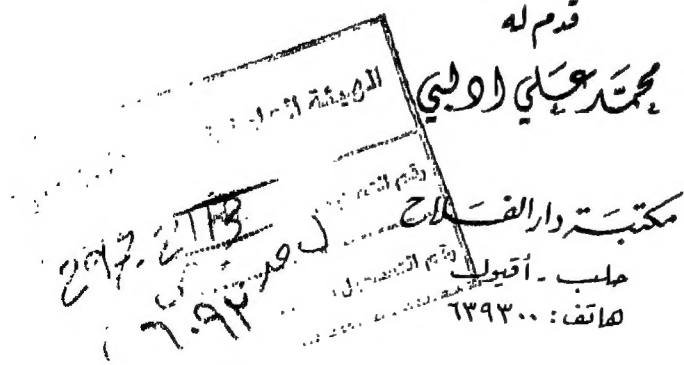 قدم له
محمد علي ادلبي
مكتبة دار الفلاح
حلب - أقيول
هاتف: ٦٣٩٣٠٠
الهيئة العامة
رقم التسجيل
٦٠٩٢